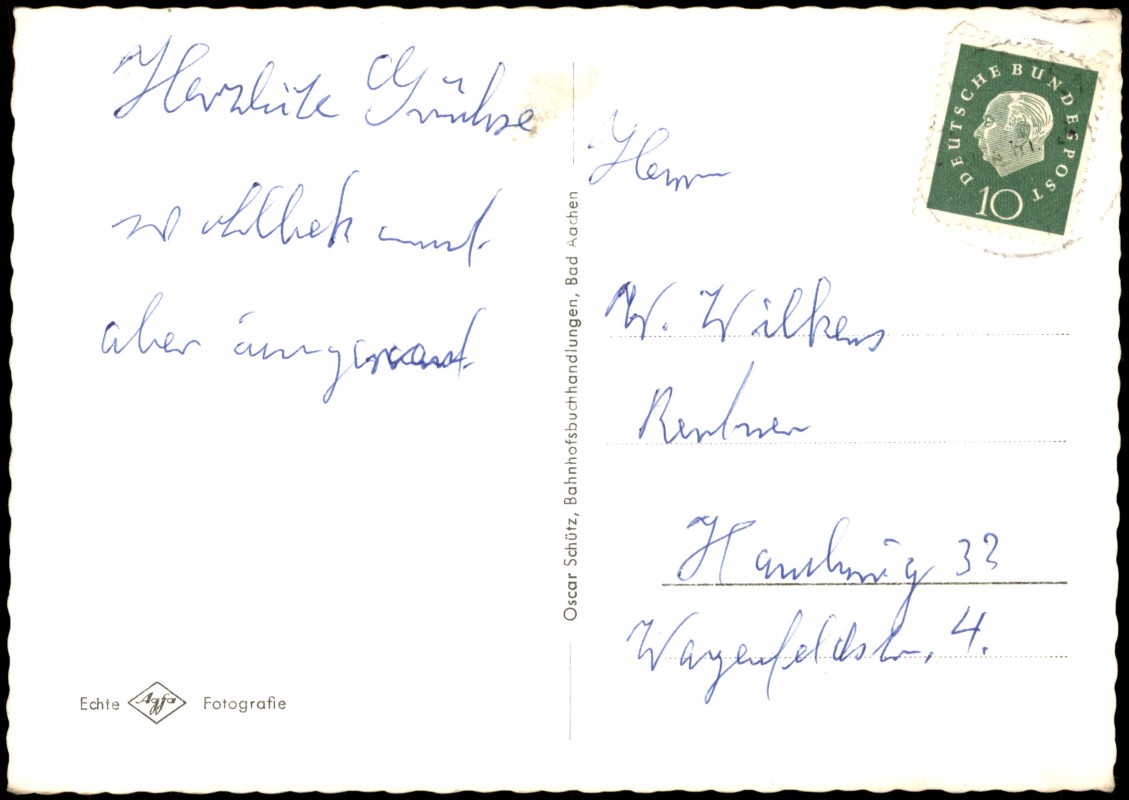 Herzliche Grühse
aber
Herrn
W. Wilkens
Rentner
Hamburg 33
Wagenfeldstr. 4.
DEUTSCHE BUNDESPOST
10
Oscar Schütz, Bahnhofsbuchhandlungen, Bad Aachen
Echte Agfa Fotografie